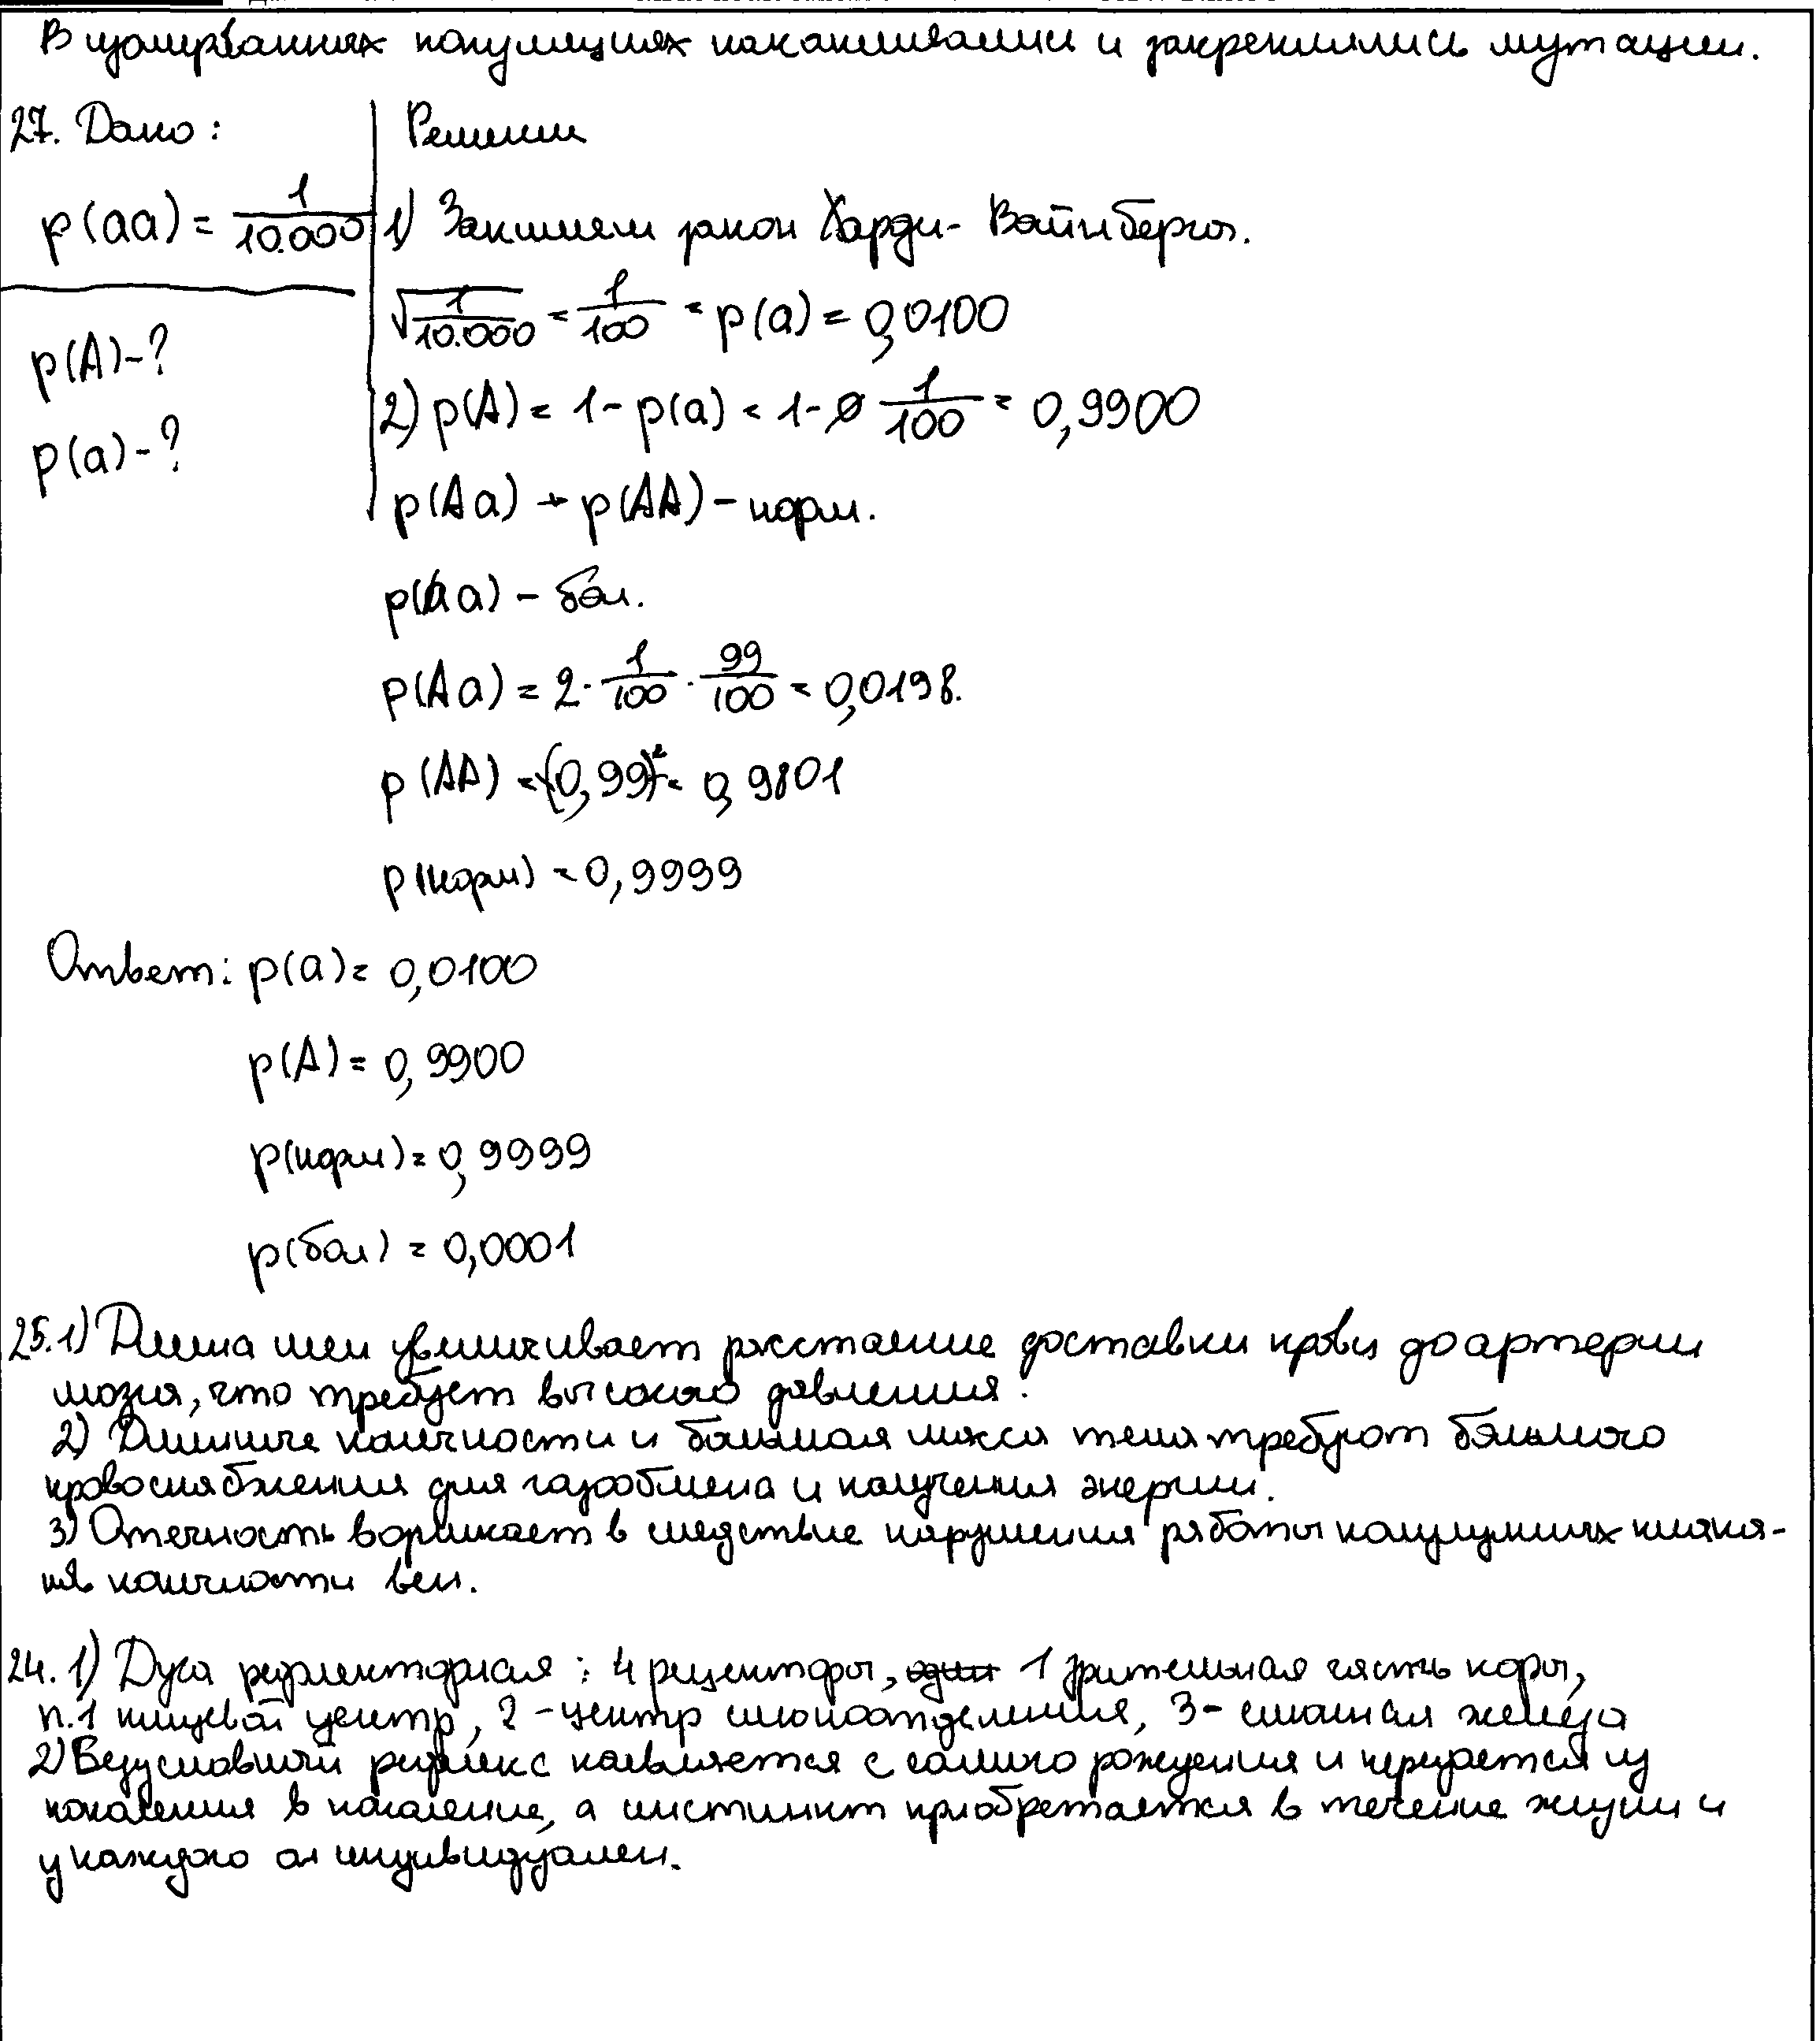 В изолированных популяциях накапливались и закреплялись мутации.
27. Дано:
Решение
p(aa) = 1/10.000
1) Запишем закон Харди-Вайнберга.
√(1/10.000) = 1/100 = p(a) = 0,0100
p(A)-?
2) p(A) = 1 - p(a) = 1 - 1/100 = 0,9900
p(a)-?
p(Aa) + p(AA) - норм.
p(aa) - бол.
p(Aa) = 2 · 1/100 · 99/100 = 0,0198.
p(AA) = (0,99)² = 0,9801
p(норм) = 0,9999
Ответ: p(a) = 0,0100
p(A) = 0,9900
p(норм) = 0,9999
p(бол) = 0,0001
25. 1) Длина шеи увеличивает расстояние доставки крови до артерии
мозга, что требует высокого давления.
2) Длинные конечности и большая масса тела требуют большого
кровоснабжения для газообмена и получения энергии.
3) Отечность возникает в следствие нарушения работы полулунных клапа-
нов конечности вен.
24. 1) Дуга рефлекторная: 4 рецепторы, 1 зрительная часть коры,
п.1 пищевой центр, 2 - центр слюноотделения, 3 - слюнная железа
2) Безусловный рефлекс появляется с самого рождения и передается из
поколения в поколение, а инстинкт приобретается в течение жизни и
у каждого он индивидуален.